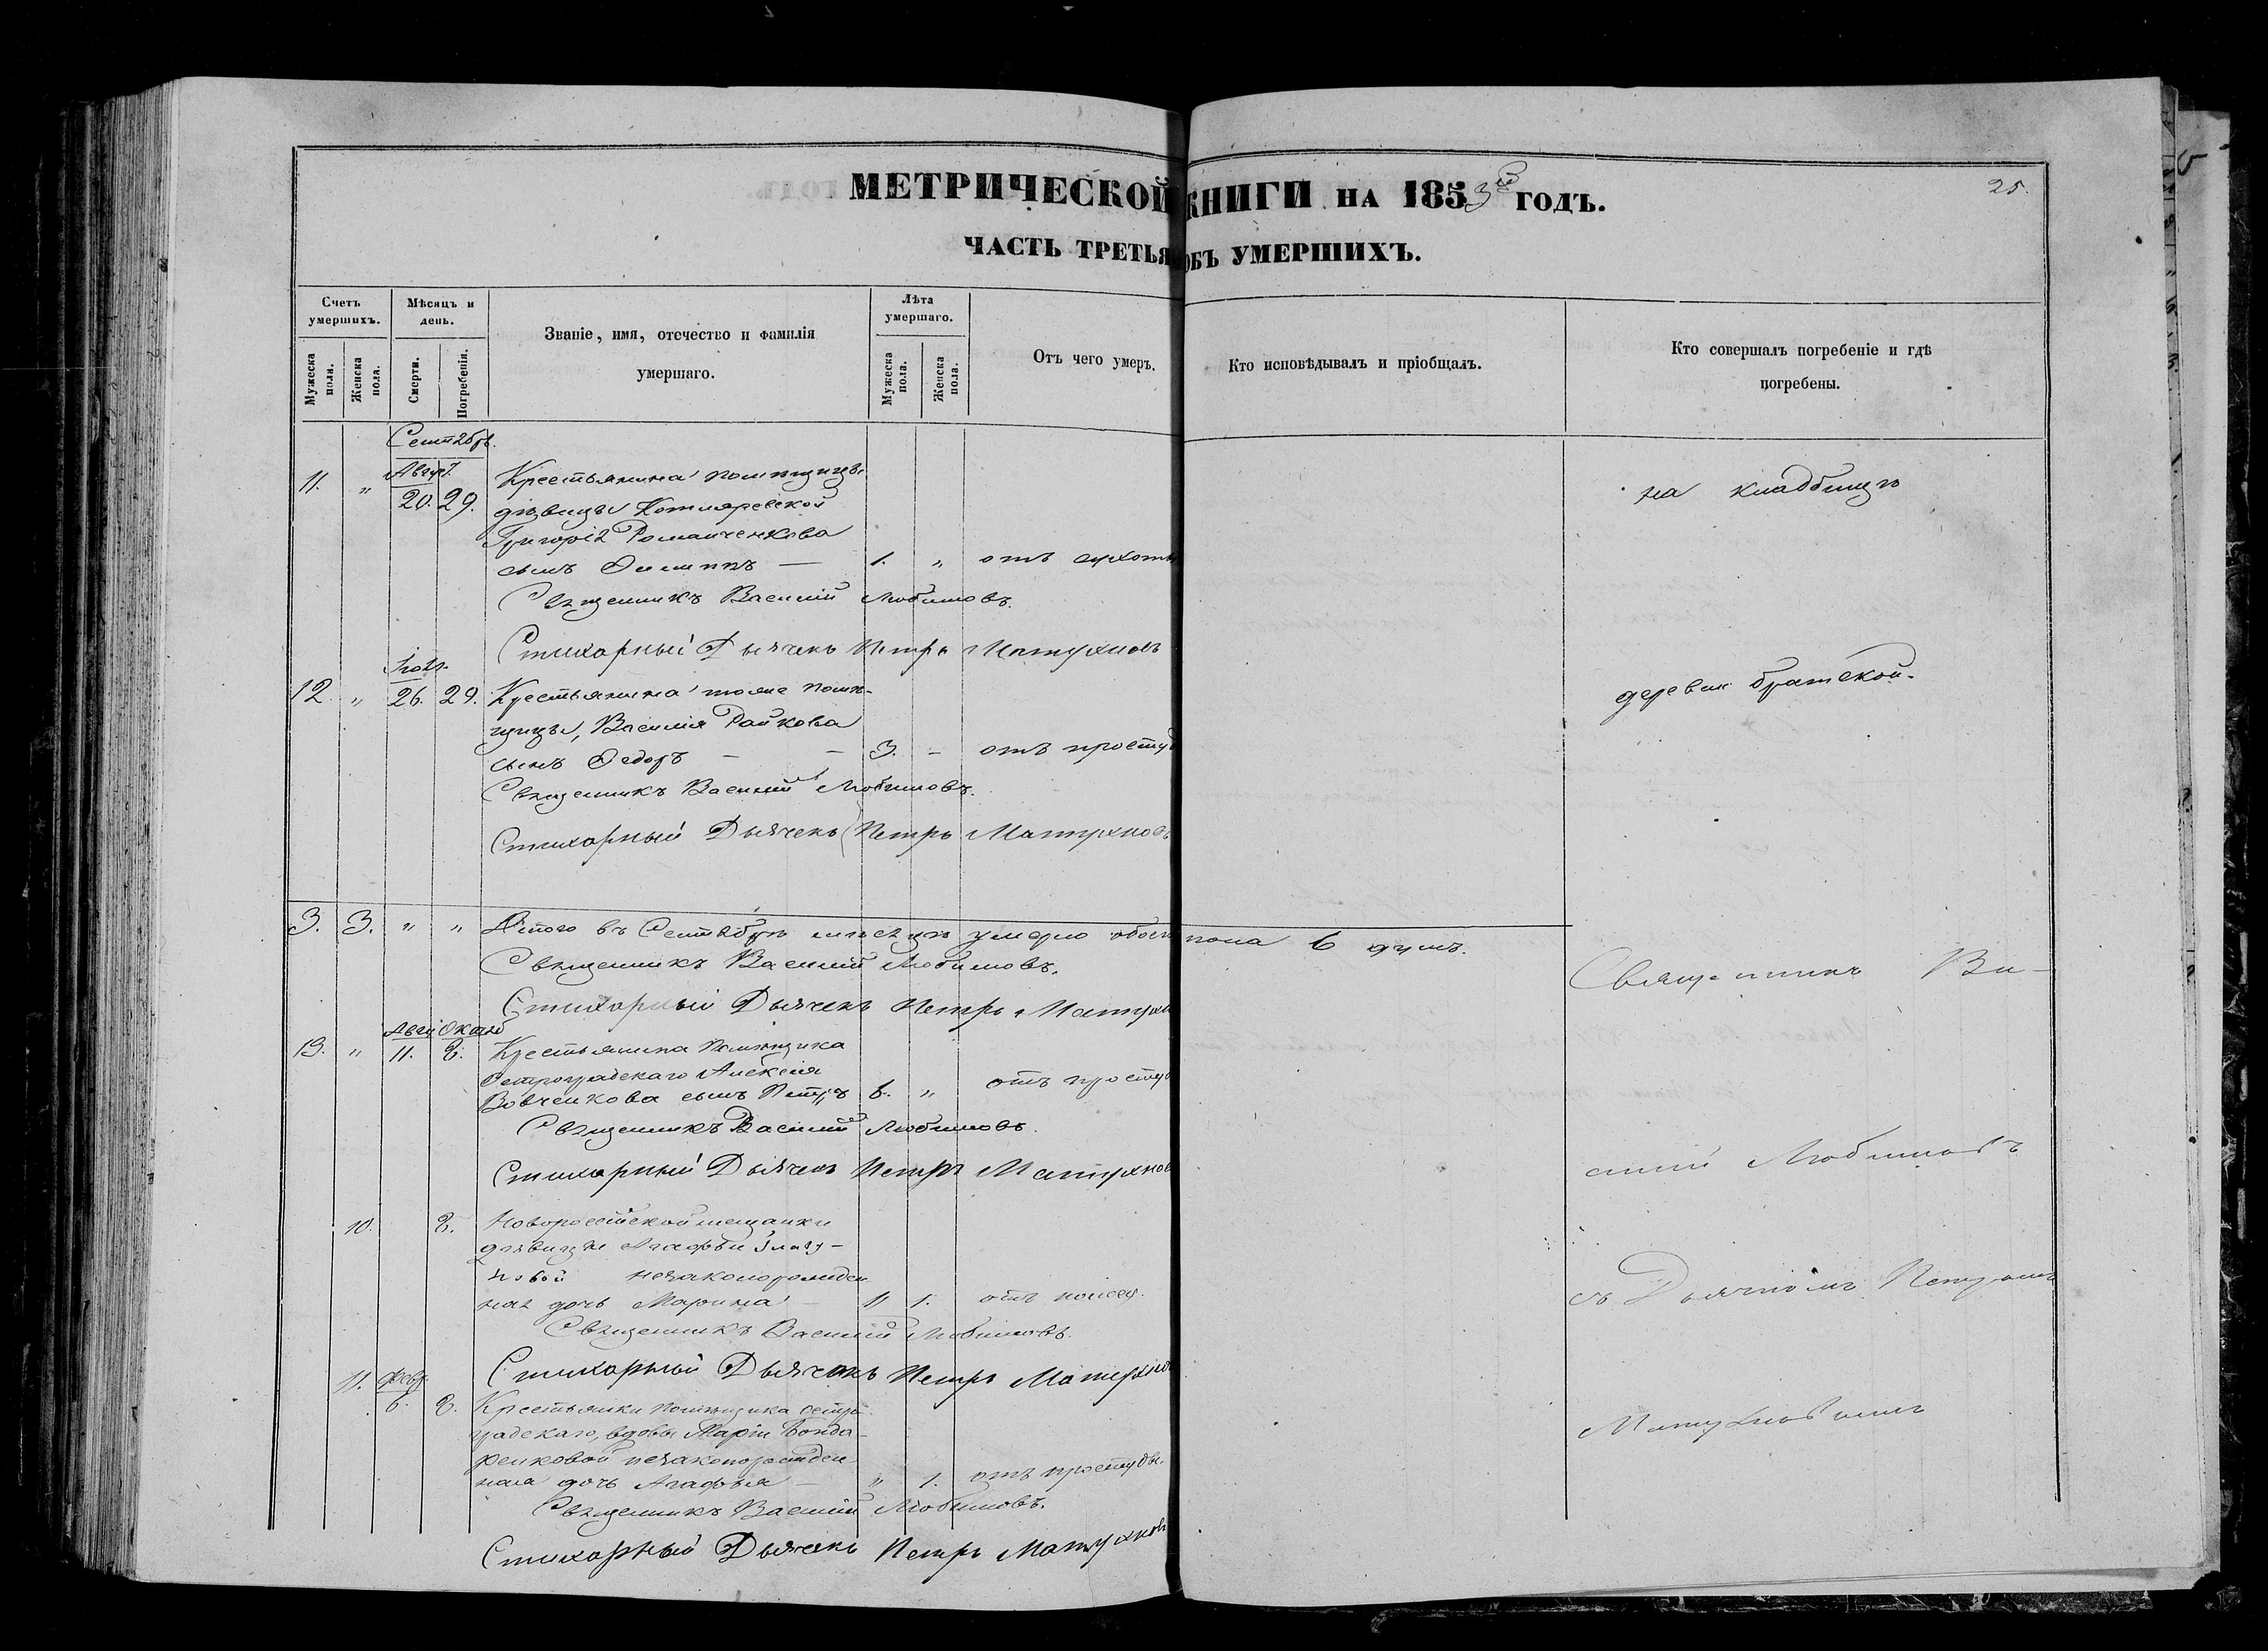 25.
МЕТРИЧЕСКОЙ КНИГИ НА 1853й ГОДЪ.
ЧАСТЬ ТРЕТЬЯ ОБЪ УМЕРШИХЪ.
Счетъ умершихъ.
Мѣсяцъ и день.
Званіе, имя, отечество и фамилія умершаго.
Лѣта умершаго.
Отъ чего умеръ.
Кто исповѣдывалъ и пріобщалъ.
Кто совершалъ погребеніе и гдѣ погребены.
Мужеска пола.
Женска пола.
Смерти.
Погребенія.
Мужеска пола.
Женска пола.
Сентябрь.
Август.
11. " 20. 29. Крестьянина помѣщицы
дѣвицы Котляревской
Григорія Романченкова
сынъ — 1. " отъ сухоты
на кладбищѣ
Священникъ Василій Любимовъ.
Стихарный Дьячекъ Петръ Матухновъ
12. " 26. 29. Крестьянина тояже помѣ-
щицы, Василія Райкова
сынъ Ѳедоръ — — 3. - отъ просту
деревни братской.
Священникъ Василій Любимовъ.
Стихарный Дьячекъ Петръ Матухновъ
3. 3. " " Итого въ Сентябрѣ мѣсяцѣ умерло обоего пола 6 душъ.
Священникъ Василій Любимовъ.
Стихарный Дьячекъ Петръ Матухн
Авгу Октяб
13. " 11. 8. Крестьянина Помѣщика
Остроградскаго Алексія
Вовченкова сынъ Петръ 6. " отъ просту
Священникъ Василій Любимовъ.
Стихарный Дьячекъ Петръ Матухнов
10. 8. Новороссійской мещанки
дѣвицы Агафьи Глазу-
новой незаконорожден
ная дочь Марина — " 1. отъ
Священникъ Василій Любимовъ.
Стихарный Дьячекъ Петръ Матухнов
11. Февр.
6. 8. Крестьянки помѣщика Остро
градскаго, вдовы Маріи Бонда-
ренковой незаконорожден
ная дочь Агафья — " 1. отъ простуды.
Священникъ Василій Любимовъ.
Стихарный Дьячекъ Петръ Матухнов
Священникъ Ва-
силій Любимовъ
съ Дьячкомъ Петромъ
Матухновымъ